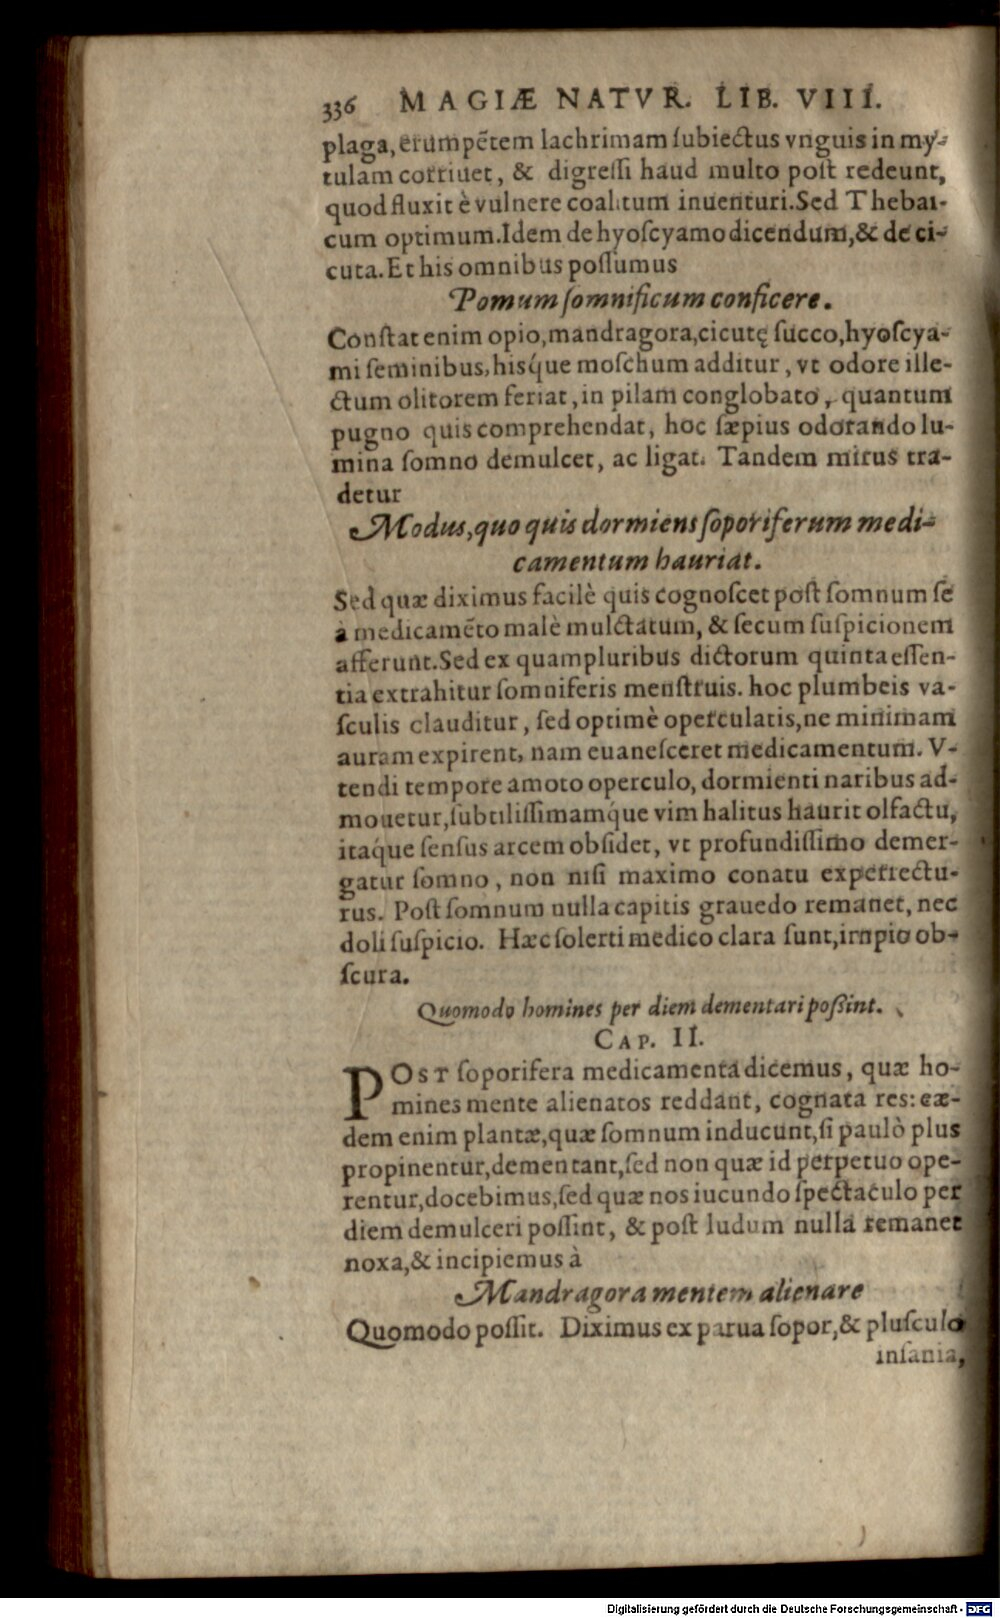 336 MAGIÆ NATVR. LIB. VIII.
plaga, erumpẽtem lachrimam ſubiectus vnguis in my-
tulam corriuet, & digreſſi haud multo poſt redeunt,
quod fluxit è vulnere coalitum inuenturi. Sed Thebai-
cum optimum. Idem de hyoſcyamo dicendum, & de ci-
cuta. Et his omnibus poſſumus
Pomum ſomnificum conficere.
Conſtat enim opio, mandragora, cicutę ſucco, hyoſcya-
mi ſeminibus, hisq́ue moſchum additur, vt odore ille-
ctum olitorem feriat, in pilam conglobato, quantum
pugno quis comprehendat, hoc ſæpius odorando lu-
mina ſomno demulcet, ac ligat. Tandem mirus tra-
detur
Modus, quo quis dormiens ſoporiferum medi-
camentum hauriat.
Sed quæ diximus facilè quis cognoſcet poſt ſomnum ſe
à medicamẽto malè mulctatum, & ſecum ſuſpicionem
afferunt. Sed ex quampluribus dictorum quinta eſſen-
tia extrahitur ſomniferis menſtruis. hoc plumbeis va-
ſculis clauditur, ſed optimè operculatis, ne minimam
auram expirent, nam euaneſceret medicamentum. V-
tendi tempore amoto operculo, dormienti naribus ad-
mouetur, ſubtiliſſimamq́ue vim halitus haurit olfactu,
itaq́ue ſenſus arcem obſidet, vt profundiſſimo demer-
gatur ſomno, non niſi maximo conatu experrectu-
rus. Poſt ſomnum nulla capitis grauedo remanet, nec
doli ſuſpicio. Hæc ſolerti medico clara ſunt, impio ob-
ſcura.
Quomodo homines per diem dementari poſsint.
CAP. II.
POST ſoporifera medicamenta dicemus, quæ ho-
mines mente alienatos reddant, cognata res: eæ-
dem enim plantæ, quæ ſomnum inducunt, ſi paulò plus
propinentur, dementant, ſed non quæ id perpetuo ope-
rentur, docebimus, ſed quæ nos iucundo ſpectaculo per
diem demulceri poſſint, & poſt ludum nulla remanet
noxa, & incipiemus à
Mandragora mentem alienare
Quomodo poſſit. Diximus ex parua ſopor, & pluſculo
inſania,
Digitalisierung gefördert durch die Deutsche Forschungsgemeinschaft - DFG